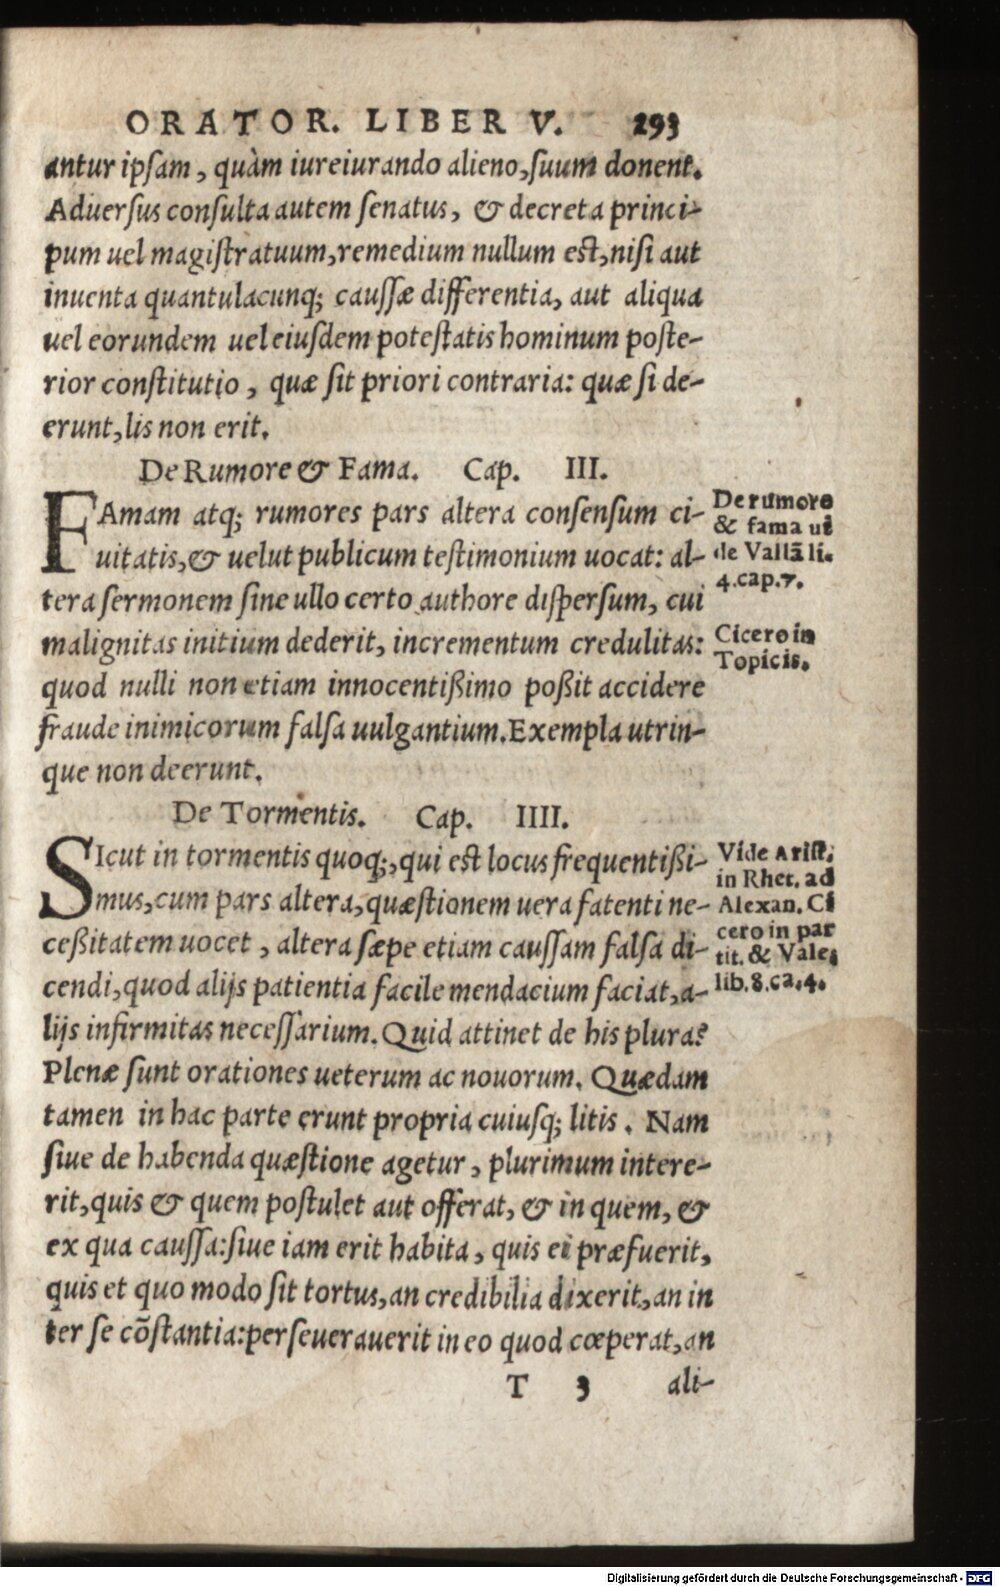 ORATOR. LIBER V. 293
antur ipsam, quàm iureiurando alieno, suum donent.
Aduersus consulta autem senatus, & decreta princi-
pum uel magistratuum, remedium nullum est, nisi aut
inuenta quantulacunq; caussæ differentia, aut aliqua
uel eorundem uel eiusdem potestatis hominum poste-
rior constitutio, quæ sit priori contraria: quæ si de-
erunt, lis non erit.
De Rumore & Fama. Cap. III.
FAmam atq; rumores pars altera consensum ci-
uitatis, & uelut publicum testimonium uocat: al-
tera sermonem sine ullo certo authore dispersum, cui
malignitas initium dederit, incrementum credulitas:
quod nulli non etiam innocentißimo poßit accidere
fraude inimicorum falsa uulgantium. Exempla utrin-
que non deerunt.
De rumore
& fama ui
de Vallã li.
4.cap.7.
Cicero in
Topicis.
De Tormentis. Cap. IIII.
SIcut in tormentis quoq;, qui est locus frequentißi-
mus, cum pars altera, quæstionem uera fatenti ne-
ceßitatem uocet, altera sæpe etiam caussam falsa di-
cendi, quod alijs patientia facile mendacium faciat, a-
lijs infirmitas necessarium. Quid attinet de his plura?
Plenæ sunt orationes ueterum ac nouorum. Quædam
tamen in hac parte erunt propria cuiusq; litis. Nam
siue de habenda quæstione agetur, plurimum intere-
rit, quis & quem postulet aut offerat, & in quem, &
ex qua caussa: siue iam erit habita, quis ei præfuerit,
quis et quo modo sit tortus, an credibilia dixerit, an in
ter se cõstantia: perseuerauerit in eo quod cœperat, an
Vide Arist.
in Rhet. ad
Alexan. Ci
cero in par
tit. & Vale.
lib.8.ca.4.
T 3 ali-
Digitalisierung gefördert durch die Deutsche Forschungsgemeinschaft - DFG